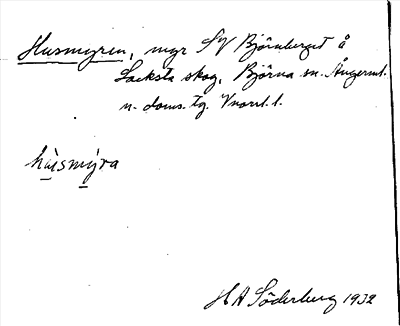 Husmyren, myr SV Björnberget å
Locksta skog, Björna sn. Ångerml.
n. doms. tg. Vnorrl. l.
hùsmýra
H A Söderberg 1932